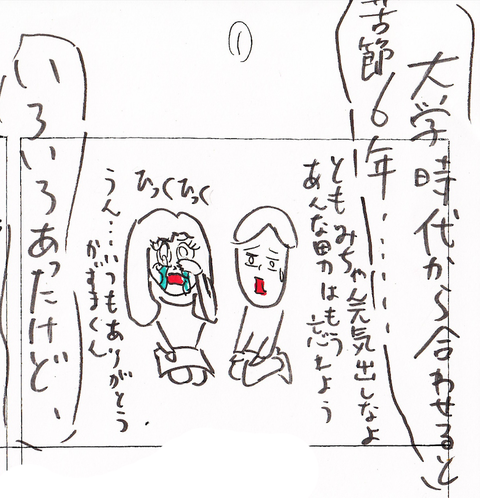 ①
大学時代から合わせると
苦節6年……
ともみちゃん元気出しなよ
あんな男はもう忘れよう
ひっくひっく
うん…いつもありがとう
かずまくん
いろいろあったけど、